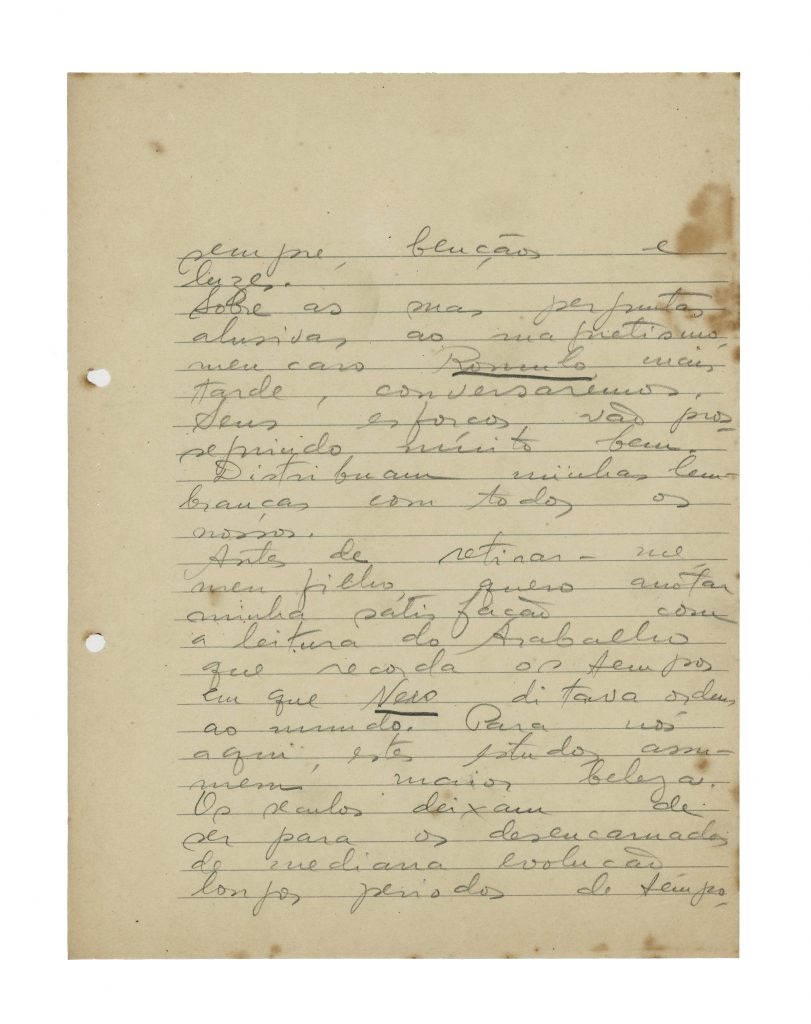 sempre, bençãos e
luzes.
Sobre as suas perguntas
alusivas ao magnetismo,
meu caro Romulo, mais
tarde, conversaremos.
Seus esforços vão pros-
seguindo muito bem.
Distribuam minhas lem-
branças com todos os
nossos.
Antes de retirar-me,
meu filho, quero anotar
minha satisfação com
a leitura do trabalho
que recorda os tempos
em que Nero ditava ordens
ao mundo. Para nós
aqui, estes estudos assu-
mem maior beleza.
Os seculos deixam de
ser para os desencarnados
de mediana evolução
longos periodos de tempo